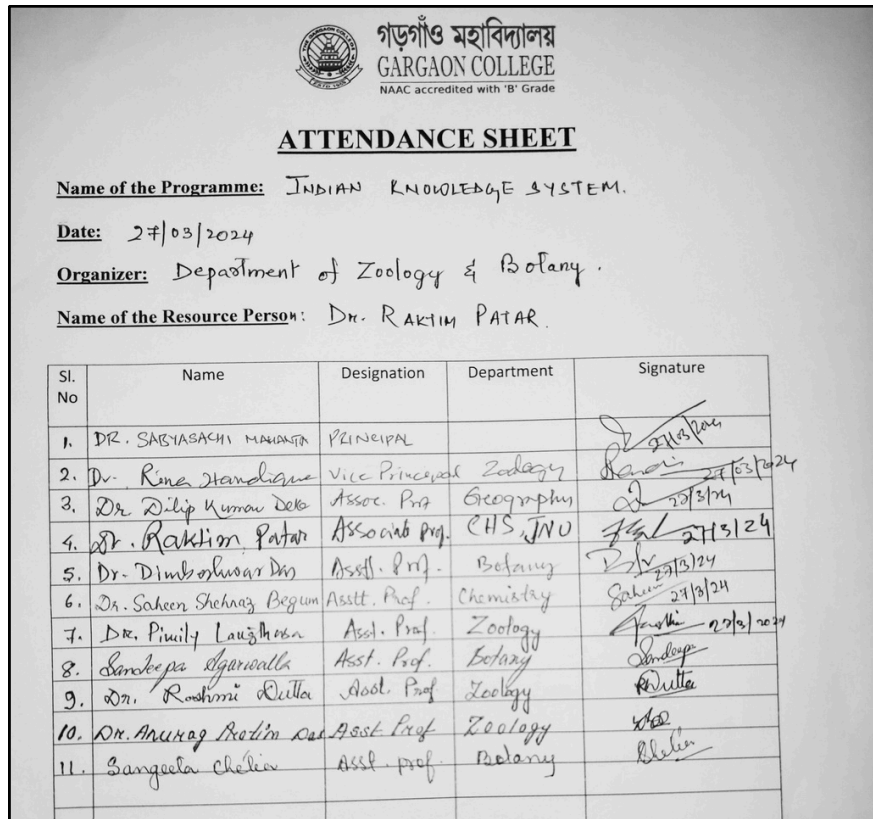 গড়গাঁও মহাবিদ্যালয়
GARGAON COLLEGE
NAAC accredited with 'B' Grade
ATTENDANCE SHEET
Name of the Programme: INDIAN KNOWLEDGE SYSTEM.
Date: 27/03/2024
Organizer: Department of Zoology & Botany.
Name of the Resource Person: DR. RAKTIM PATAR.
Sl. No Name Designation Department Signature
1. DR. SABYASACHI MAHANTA PRINCIPAL 27/03/2024
2. Dr. Rina Handique Vice Principal Zoology 27/03/2024
3. Dr Dilip Kumar Deka Assoc. Prof Geography 27/3/24
4. Dr. Raktim Patar Associate Prof. CHS, JNU 27/3/24
5. Dr. Dimbeshwar Das Asstt. Prof. Botany 27/3/24
6. Dr. Saheen Shehnaz Begum Asstt. Prof. Chemistry 27/3/24
7. Dr. Pimily Langthasa Asst. Prof. Zoology 27/3/2024
8. Sandeepa Agarwalla Asst. Prof. Botany Sandeepa
9. Dr. Rashmi Dutta Asst. Prof Zoology RDutta
10. Dr. Anurag Protim Das Asst Prof Zoology
11. Sangeeta Chetia Asst. prof. Botany